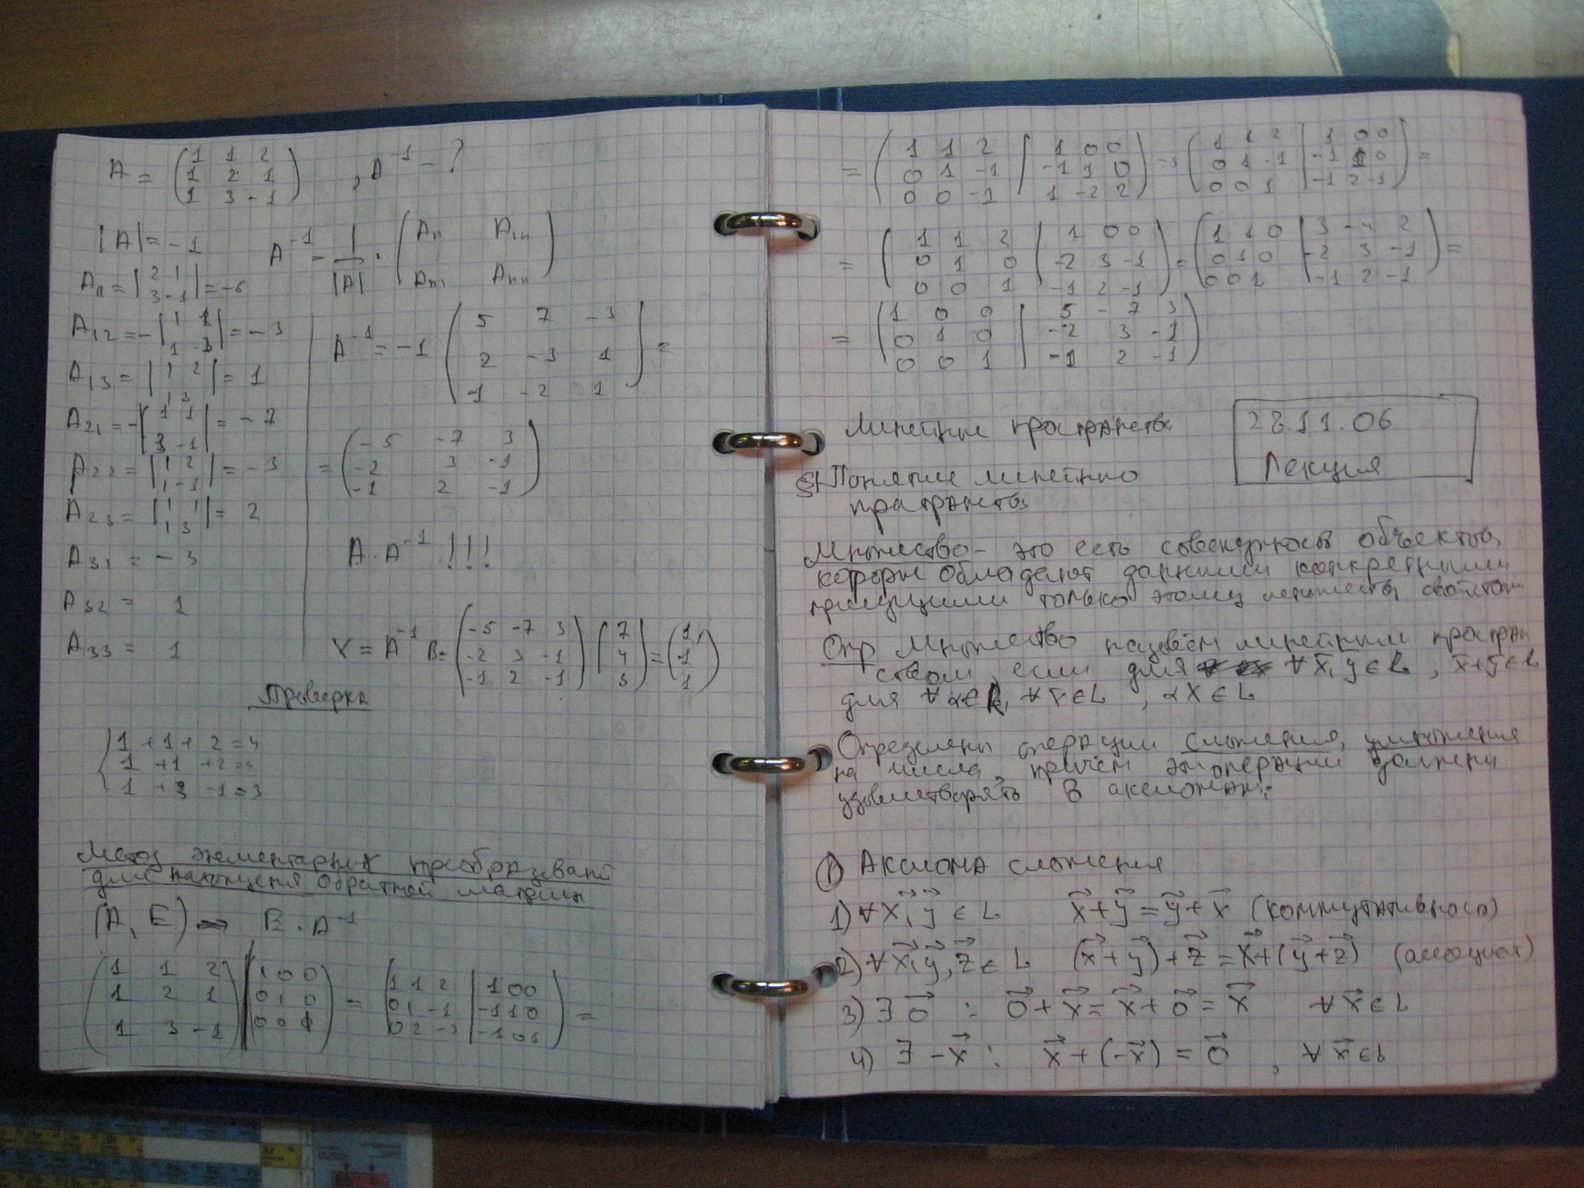 A = (1 1 2
1 2 1
1 3 -1) , A⁻¹ - ?
|A| = -1
A⁻¹ = 1/|A| · (A₁₁ A₁ₙ
Aₙ₁ Aₙₙ)
A₁₁ = |2 1
3 -1| = -5
A₁₂ = -|1 1
1 -3| = -3
A₁₃ = |1 2
1 3| = 1
A₂₁ = -|1 1
3 -1| = -7
A₂₂ = |1 2
1 -1| = -3
A₂₃ = |1 1
1 3| = 2
A₃₁ = -3
A₃₂ = 1
A₃₃ = 1
A⁻¹ = -1 (5 7 -3
2 -3 1
1 -2 1) =
= (-5 -7 3
-2 3 -1
-1 2 -1)
A · A⁻¹ !!!
X = A⁻¹ B = (-5 -7 3
-2 3 -1
-1 2 -1) (7
4
3) = (1
1
1)
Проверка
{1 + 1 + 2 = 4
1 + 1 + 2 = 4
1 + 3 - 1 = 3
Метод элементарных преобразований
для нахождения обратной матрицы
(A, E) → B · A⁻¹
(1 1 2 | 1 0 0
1 2 1 | 0 1 0
1 3 -1 | 0 0 1) = (1 1 2 | 1 0 0
0 1 -1 | -1 1 0
0 2 -3 | -1 0 1) =
= (1 1 2 | 1 0 0
0 1 -1 | -1 1 0
0 0 -1 | 1 -2 2) → (1 1 2 | 1 0 0
0 1 -1 | -1 1 0
0 0 1 | -1 2 -1) =
= (1 1 2 | 1 0 0
0 1 0 | -2 3 -1
0 0 1 | -1 2 -1) = (1 1 0 | 3 -4 2
0 1 0 | -2 3 -1
0 0 1 | -1 2 -1) =
= (1 0 0 | 5 -7 3
0 1 0 | -2 3 -1
0 0 1 | -1 2 -1)
28.11.06
Лекция
Линейные пространства
§1 Понятие линейного
пространства
Множество - это есть совокупность объектов,
которые обладают данными конкретными
присущими только этому множеству свойствами
Опр Множество назовём линейным простран
ством, если для ∀ x, y ∈ L , x+y ∈ L
для ∀ α ∈ R, ∀ x ∈ L , αx ∈ L
Определены операции сложения, умножения
на число, причём эти операции должны
удовлетворять 8 аксиомам:
① Аксиома сложения
1) ∀ x⃗, y⃗ ∈ L x⃗ + y⃗ = y⃗ + x⃗ (коммутативность)
2) ∀ x⃗, y⃗, z⃗ ∈ L (x⃗ + y⃗) + z⃗ = x⃗ + (y⃗ + z⃗) (ассоциат)
3) ∃ 0⃗ : 0⃗ + x⃗ = x⃗ + 0⃗ = x⃗ ∀ x⃗ ∈ L
4) ∃ -x⃗ : x⃗ + (-x⃗) = 0⃗ , ∀ x⃗ ∈ L